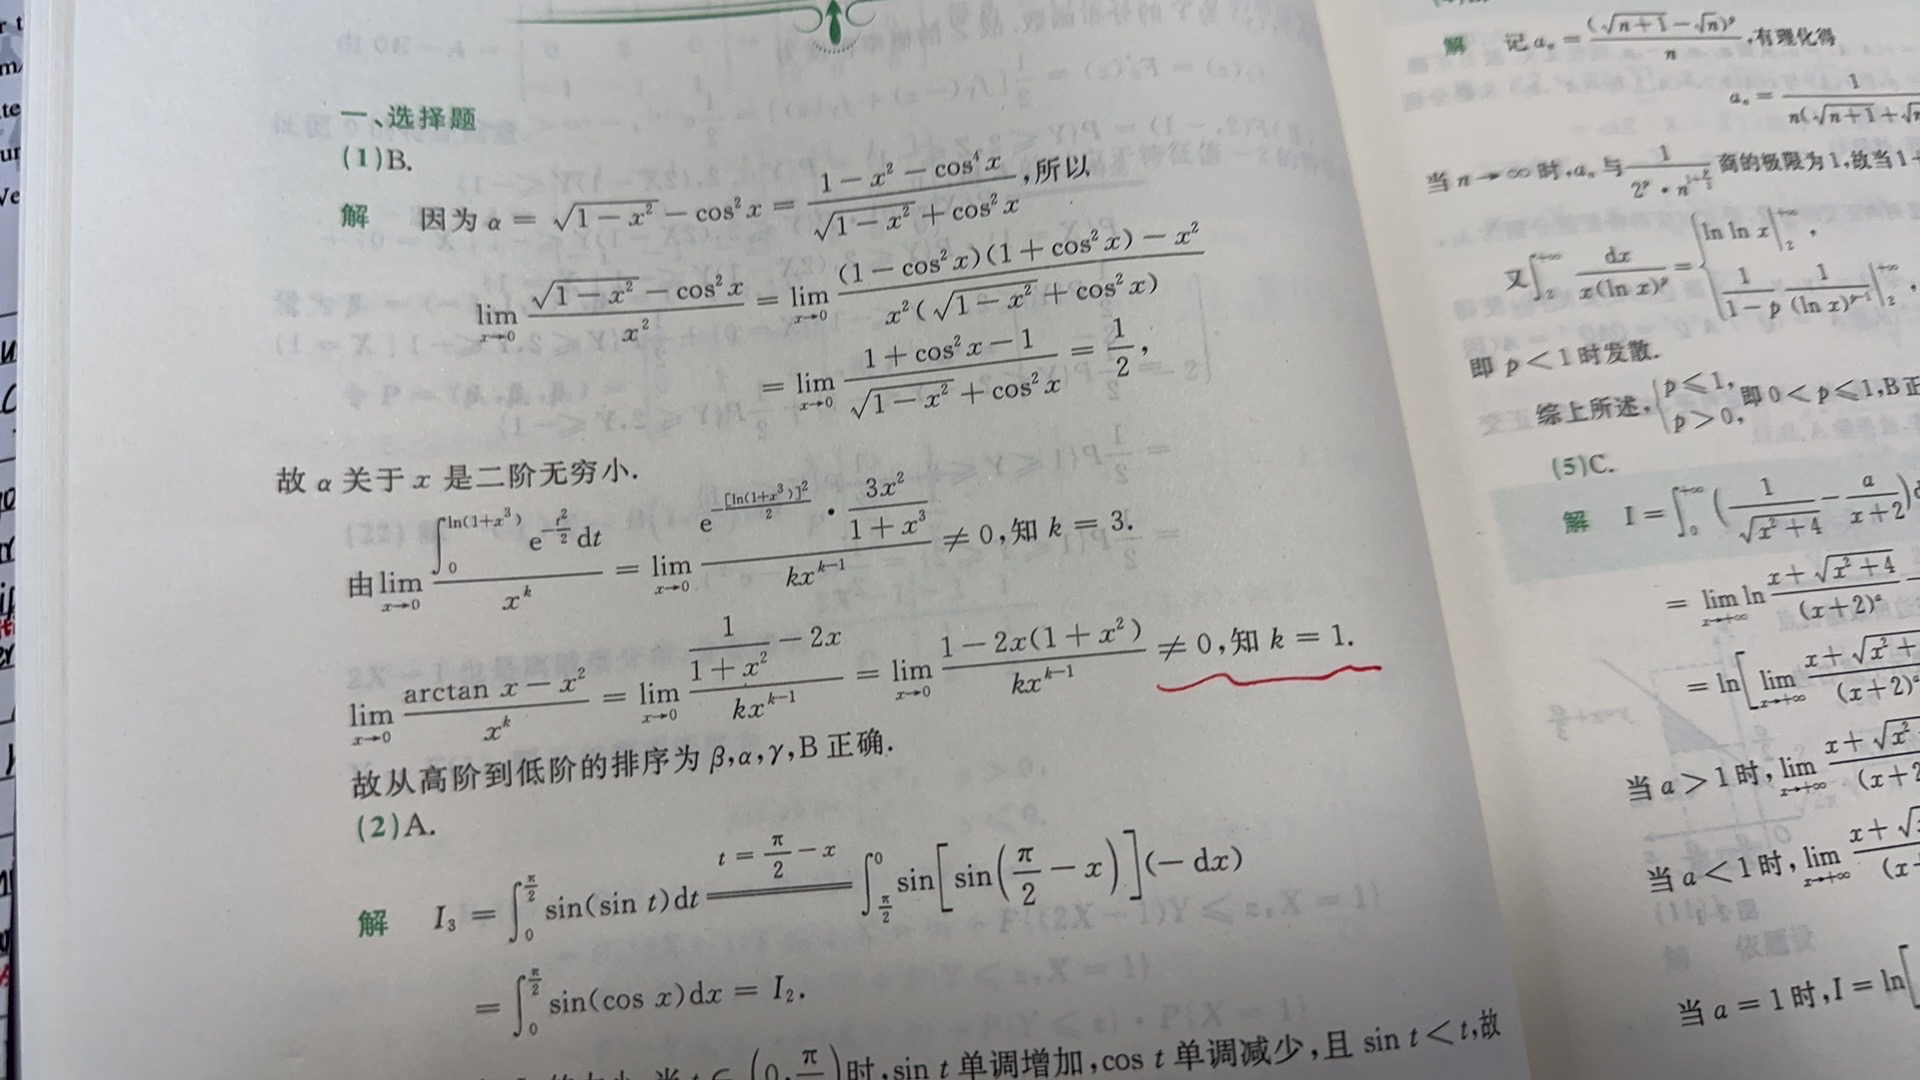 一、选择题
(1)B.
解 因为 α = √(1−x²) − cos²x = (1−x²−cos⁴x)/(√(1−x²)+cos²x),所以
lim_{x→0} (√(1−x²)−cos²x)/x² = lim_{x→0} ((1−cos²x)(1+cos²x)−x²)/(x²(√(1−x²)+cos²x))
= lim_{x→0} (1+cos²x−1)/(√(1−x²)+cos²x) = 1/2,
故 α 关于 x 是二阶无穷小.
由 lim_{x→0} (∫_0^{ln(1+x³)} e^{−t²/2} dt)/x^k = lim_{x→0} (e^{−[ln(1+x³)]²/2} · 3x²/(1+x³))/(kx^{k−1}) ≠ 0,知 k = 3.
lim_{x→0} (arctan x − x²)/x^k = lim_{x→0} (1/(1+x²) − 2x)/(kx^{k−1}) = lim_{x→0} (1−2x(1+x²))/(kx^{k−1}) ≠ 0,知 k = 1.
故从高阶到低阶的排序为 β,α,γ,B 正确.
(2)A.
解 I₃ = ∫_0^{π/2} sin(sin t)dt \xlongequal{t = π/2 − x} ∫_{π/2}^0 sin[sin(π/2 − x)](−dx)
= ∫_0^{π/2} sin(cos x)dx = I₂.
时,sin t 单调增加,cos t 单调减少,且 sin t < t,故
解 记 aₙ = (√(n+1)−√n)^p/n,有理化得
aₙ = 1/n(√(n+1)+
当 n→∞ 时,aₙ 与 1/(2^p · n^{1+p/2}) 商的极限为 1,故当 1+
又∫_2^{+∞} dx/(x(ln x)^p) = { ln ln x |_2^{+∞},
1/(1−p) 1/(ln x)^{p−1} |_2^{+∞},
即 p < 1 时发散.
综上所述, { p ≤ 1, p > 0, 即 0 < p ≤ 1,B 正
(5)C.
解 I = ∫_0^{+∞} (1/√(x²+4) − a/(x+2))
= lim_{x→+∞} ln (x+√(x²+4))/(x+2)^a −
= ln[ lim_{x→+∞} (x+√(x²+/(x+2)^a
当 a > 1 时, lim_{x→+∞} (x+√x²/(x+2
当 a < 1 时, lim_{x→+∞} x+√/(x
当 a = 1 时,I = ln[